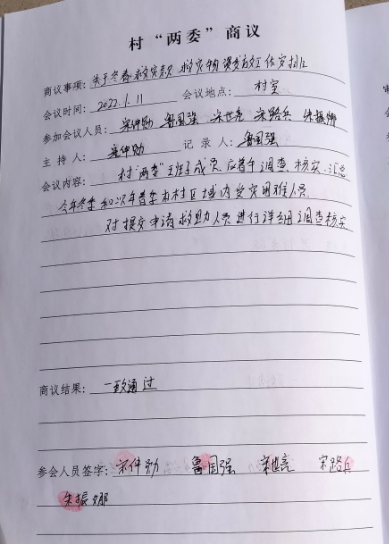 村“两委”商议
商议事项：关于冬春救灾款、救灾物资发放工作安排
会议时间：2022.1.11 会议地点：村室
参加会议人员：宋仲勋 鲁国强 宋世亮 宋路兵 朱振娜
主持人：宋仲勋 记录人：鲁国强
会议内容：村“两委”班子成员、应着手调查、核实、汇总
今年冬季和次年春季本村区域内受灾困难人员
对提交申请救助人员进行详细调查核实
商议结果：一致通过
参会人员签字：宋仲勋 鲁国强 宋世亮 宋路兵
朱振娜